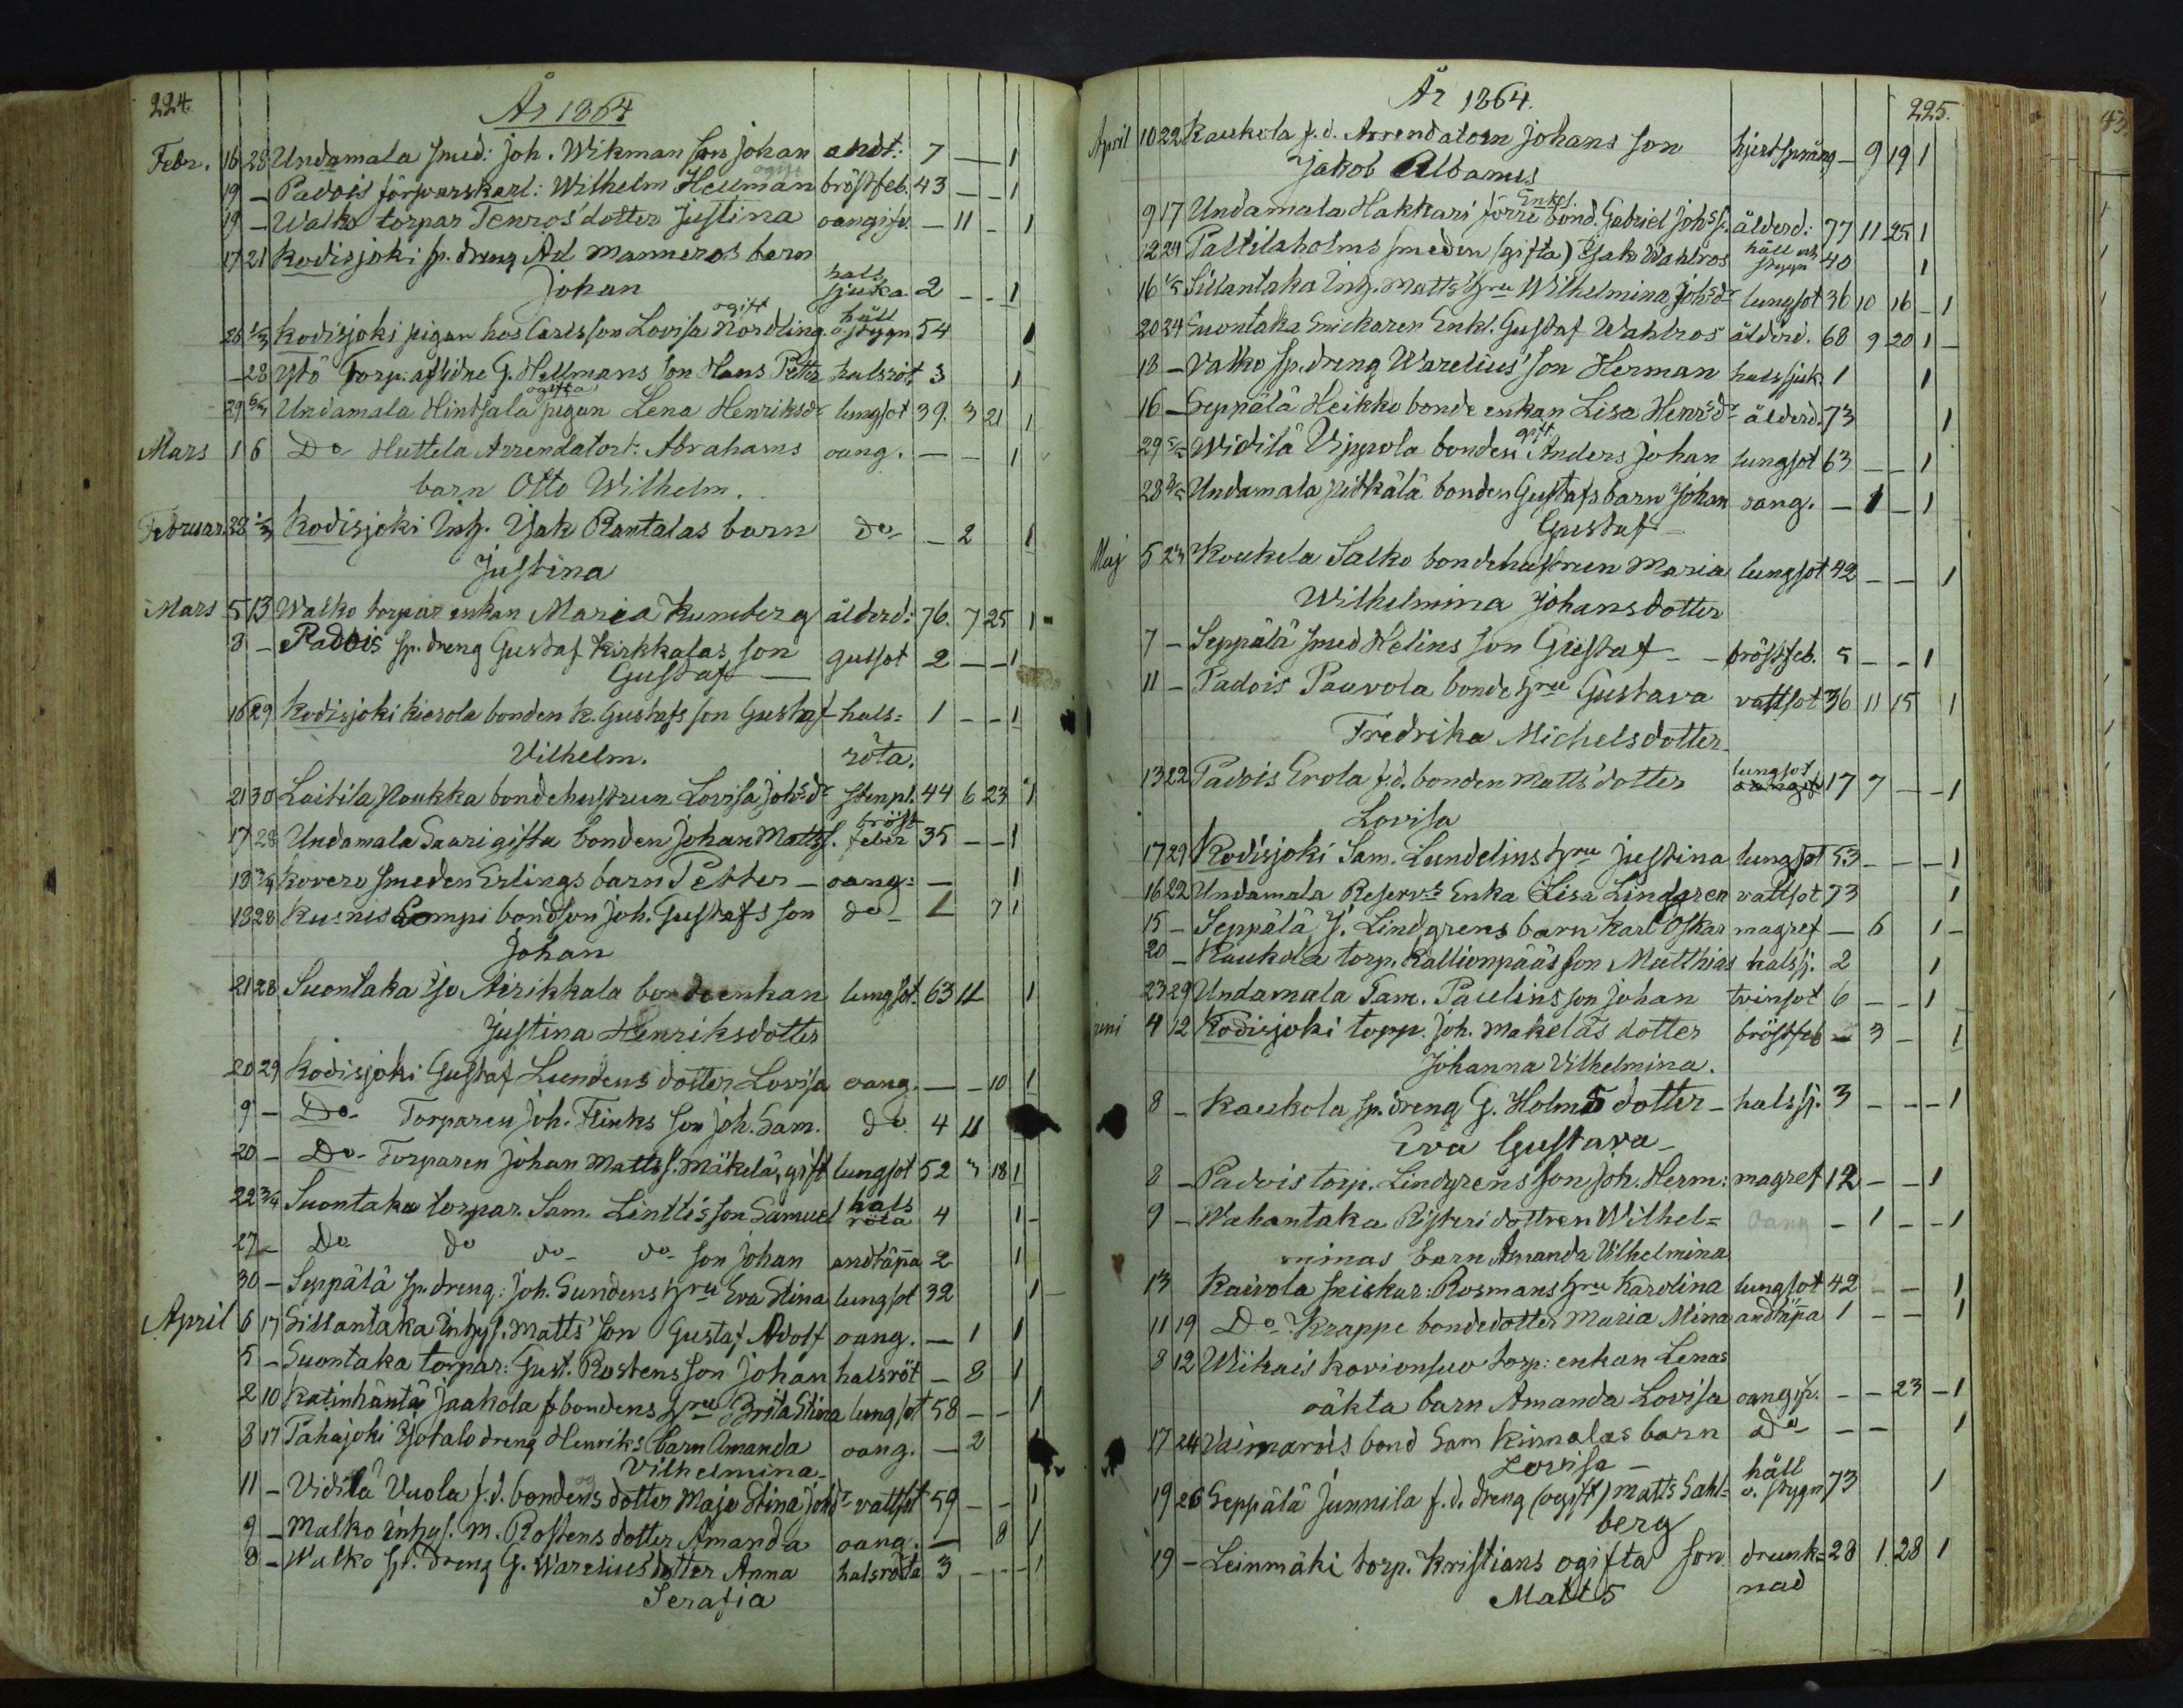 224.
År 1864
Febr. 16 28 Undamala smed: Joh. Wikman son Johan andt: 7 — 1
ogift
19 — Padois försvarskarl: Wilhelm Hellman bröstfeb. 43 — — 1
19 — Walko torpar Tenros' dotter Justina oangifv. — 11 — 1
17 21 Kodisjoki sp. dreng Ad Manneros barn
Johan hals sjuka 2 — — 1
ogift
26 1/3 Kodisjoki pigan hos Carlsson Lovisa Nordling håll o. stygn 54 1
— 28 Ystö Torp. aflidne G. Hellmans son Hans Petter halsröt 3 1
ogifta
29 6/3 Undamala Hintsala pigan Lena Henriksdr lungsot 39. 3 21 1
Mars 1 6 Do Huttela Arrendatort: Abrahams oang. — — 1
barn Otto Wilhelm.
Februar. 28 1/3 Kodisjoki Inh. Isak Rantalas barn do — 2 1
Justina
Mars 5 13 Walko torpar enkan Maria Kumberg ålderd: 76. 7 25 1
8 — Padois sp. dreng Gustaf Kirkkalas son gulsot 2 — — 1
Gustaf —
16 29 Kodisjoki Kierola bonden K. Gustafs son Gustaf hals= 1 — — 1
Vilhelm. röta.
21 30 Laitila Poukka bondehustrun Lovisa Johsdr stenpl. 44 6 23 1
17 28 Undamala Saari gifta bonden Johan Mattss. bröst feber 35 — — 1
18 3/4 Kovero smeden Erlings barn Petter — oang: — 1
13 28 Kusnis Lompi bondson Joh. Gustafs son do 1 7 1
Johan
21 28 Suontaka Iso Aerikkala bondeenkan lungsot. 63 11 1
Justina Henriksdotter
20 29 Kodisjoki Gustaf Lundens dotter Lovisa oang. — — 10 1
9 — Do Torparen Joh. Flinks son Joh. Sam. do 4 11
20 — Do Torparen Johan Mattss. Mäkelä, gift lungsot 52 3 18 1
22 3/4 Suontaka torpar. Sam. Linttis son Samuel hals röta 4 1 —
27 — Do do do do son Johan andtäppa 2 1
30 — Seppälä sp. dreng: Joh. Sundens hru Eva Stina lungsot 32 1
April 6 17 Sillantaka Inhys. Matts' son Gustaf Adolf oang. — 1 1
5 — Suontaka torpar: Gust. Rostens son Johan halsröt — 8 1
2 10 Katinhäntä Jaakola f bondens hru Brita Stina lungsot 58 — — 1
8 17 Pahajoki Isotalo dreng Henriks barn Amanda oang. — 2
Vilhelmina
11 — Vidilä Vuola f. d. bondens dotter Maja Stina Johdr vattsot 59 — — 1
9 — Malko Inhys. M. Rostens dotter Amanda oang. — 8 1
8 — Walko sp. dreng G. Warelius' dotter Anna halsröta 3 — — 1
Serafia
År 1864.
225.
April 10 22 Kaukola f. d. Arrendatorn Johans son hjertspräng — 9 19 1
Jakob Albanus
Enkl.
9 17 Undamala Hakkari förre bond. Gabriel Johss. ålderd: 77 11 25 1
12 24 Paltilaholms smeden (gifta) Isak Wahlros håll och stygn 40 1
16 1/5 Sillantaka Inh. Matts' hru Wilhelmina Johsdr lungsot 36 10 16 — 1
20 24 Suontaka Snickaren Enkl. Gustaf Wahlros ålderd. 68 9 20 1 —
18 — Valko sp. dreng Warelius' son Herman halssjuk 1 1
16 — Seppälä Heikko bonde enkan Lisa Henrsdr ålderd. 73 1
gift
29 Widilä Uppola bonden Anders Johan lungsot 63 — — 1
28 Undamala Pitkälä bonden Gustafs barn Johan oang. — 1 — 1
Gustaf
Maj 5 23 Koukela Salko bondehustrun Maria lungsot 42 — — 1
Wilhelmina Johansdotter
7 — Seppälä smed Helins son Gustaf — — bröstfeb. 5 — — 1
11 — Padois Pauvola bonde hru Gustava vattsot 36 11 15 1
Fredrika Michelsdotter
13 22 Padois Erola f. d. bonden Matts' dotter lungsot 17 7 — — 1
Lovisa
17 29 Kodisjoki Sam. Lundelins hru Justina lungsot 53 — — — 1
16 22 Undamala Reservs Enka Lisa Lindgren vattsot 73 1
15 — Seppälä J. Lindgrens barn Karl Oskar magref — 6 1 —
20 — Kaukola torp. Kallionpääs son Matthias halsj. 2 1
23 29 Undamala Sam. Paulins son Johan tvinsot 6 — — 1
Juni 4 12 Kodisjoki topp. Joh. Makeläs dotter bröstfeb — 3 — 1
Johanna Vilhelmina.
8 — Kaukola sp. dreng G. Holms dotter — halsj. 3 — — — 1
Eva Gustava
8 — Padois torp. Lindgrens son Joh. Herm: magref 12 — — 1
9 — Wahantaka Risteri dottren Wilhel= oang — 1 — — 1
minas barn Amanda Vilhelmina
13 Kaivola Rosmans hru Karolina lungsot 42 — — 1
11 19 Do Krappe bondedotter Maria Mina andtäppa 1 — — 1
8 12 Wihais Kovionsuo torp: enkan Lenas
oäkta barn Amanda Lovisa oangif. — — 23 — 1
17 24 Vaimaros bond Sam Kinnalas barn do — — 1
Lovisa —
19 26 Seppälä Junnila f. d. dreng (ogift) Matts Sahl= håll o. stygn 73 1
berg
19 — Leinmäki torp. Kristians ogifta son drunk= 28 1 28 1
Matts nad
43.